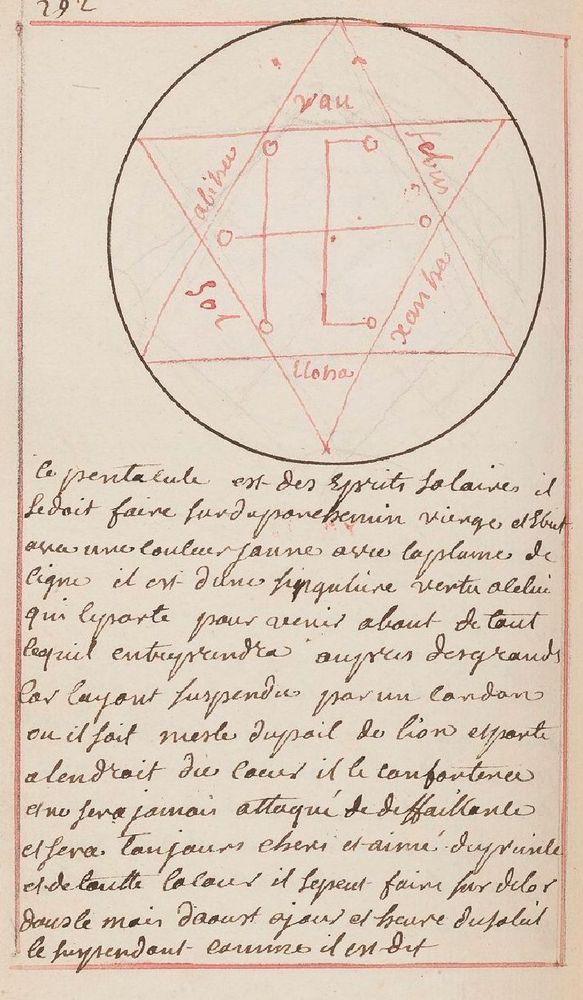 292
vau
abiha
sebur
sol
xanha
Eloha
ce pentacule est des Esprits solaires il
se doit faire sur du parchemin vierge et Ecrit
avec une couleur jaune avec la plume de
cigne il est dune singuliere vertu a celui
qui le porte pour venir about de tout
ce quil entreprendra aupres des grands
car layant suspendu par un cordon
ou il soit mesle du poil de lion et porte
alendroit du coeur il le confortera
et ne sera jamais attaqué de deffaillance
et sera toujours cheri et aimé du prince
et de toutte la cour il se peut faire sur de lor
dans le mois daoust a jour et heure du soleil
le suspendant comme il est dit